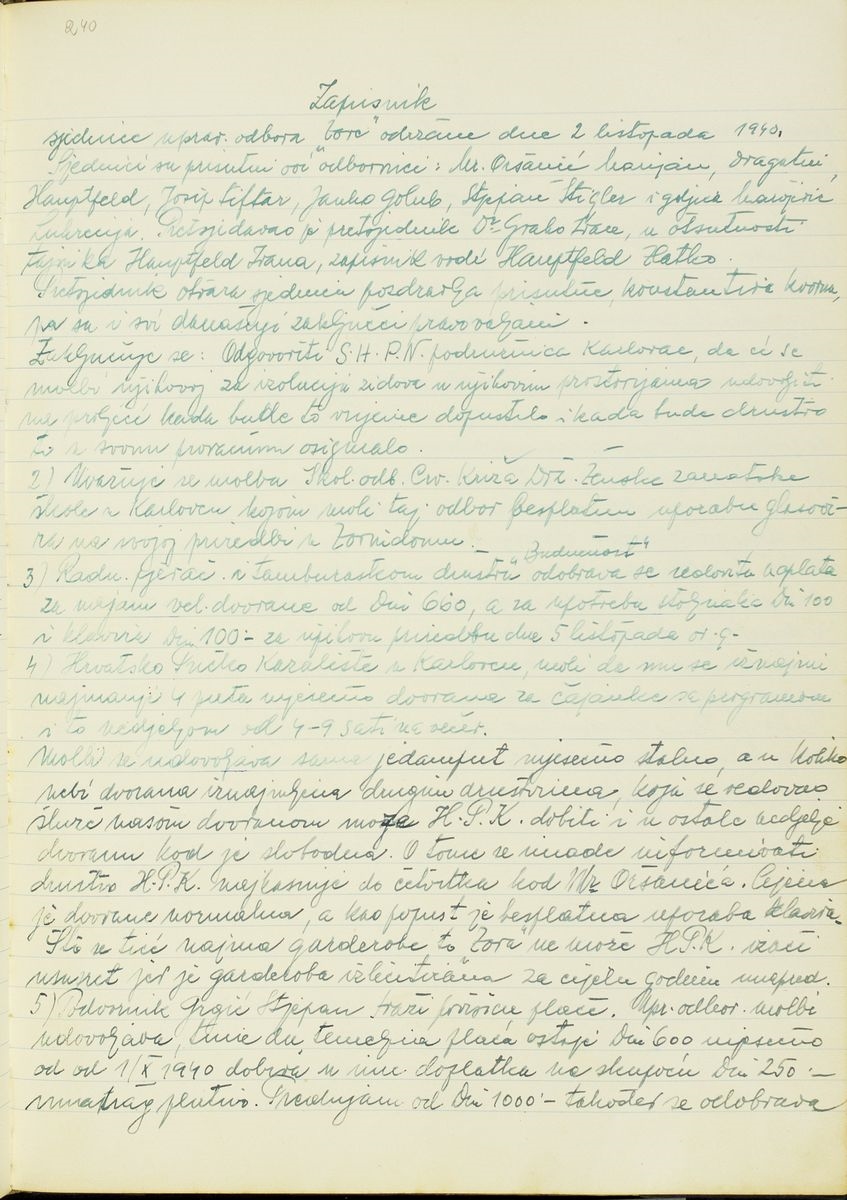 240
Zapisnik
sjednice uprav. odbora "Zore" održane dne 2 listopada 1940.
Sjednici su prisutni ovi odbornici: Mr. Oršanić Marijan, Dragutin
Hauptfeld, Josip Tiftar, Janko Golub, Stjepan Štigler i gdjica
Lukrecija. Pretsjedavao je pretsjednik Dr Grako, u otsutnosti
tajnika Hauptfeld Ivana, zapisnik vodi Hauptfeld Ratko.
Pretsjednik otvara sjednicu pozdravlja prisutne, konstantira kvorum,
pa su i svi današnji zaključci pravovaljani.
Zaključuje se: Odgovoriti S.H.P.N. podružnica Karlovac, da će se
molbi njihovoj za izolaciju zidova u njihovim prostorijama udovoljiti
na proljeće kada bude to vrijeme dopustilo i kada bude društvo
to u svom proračunu osiguralo.
2) Uvažuje se molba Škol. odb. Crv. Križa Drž. Ženske zanatske
škole u Karlovcu kojom moli taj odbor besplatnu uporabu glasovi-
ra na svojoj priredbi u Zorindomu.
3) Radn. pjevač. i tamburaškom društvu "Budućnost" odobrava se redovita uplata
za najam vel. dvorane od Din 600, a za upotrebu stolnjaka Din 100
i klavira Din 100.- za njihovu priredbu dne 5 listopada ov. g.
4) Hrvatsko Pučko Kazalište u Karlovcu, moli da mu se iznajmi
najmanje 4 puta mjesečno dvorana za čajanke sa programom
i to nedjeljom od 4-9 sati na večer.
Molbi se udovoljava samo jedamput mjesečno stalno, a u koliko
nebi dvorana iznajmljena drugim društvima, koja se redovno
služe našom dvoranom može H.P.K. dobiti i u ostale nedjelje
dvoranu kad je slobodna. O tome se imade informirati
društvo H.P.K. najkasnije do četvrtka kod Mr. Oršanića. Cijena
je dvorane normalna, a kao popust je besplatna uporaba klavira.
Što se tiče najma garderobe to "Zora" ne može H.P.K. izaći
ususret jer je garderoba izlicitirana za cijelu godinu unapred.
5) Podvornik Grgić Stjepan traži povišicu plaće. Upr. odbor molbi
udovoljava, time da temeljna plaća ostaje Din 600 mjesečno
od od 1/X 1940 dobiva u ime doplatka na skupoću Din 250.-
unatrag plativo. Predujam od Din 1000.- također se odobrava